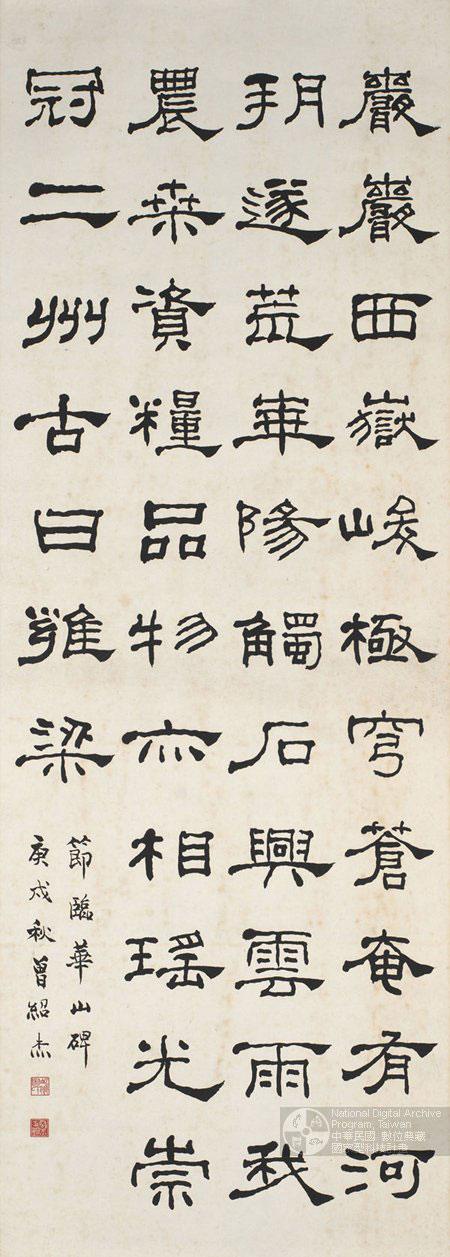 巖巖西嶽峻極穹蒼奄有河
朔遂荒華陽觸石興雲雨我
農桒資糧品物亦相瑤光崇
冠二州古曰雍梁
節臨華山碑
庚戌秋曾紹杰
National Digital Archive
Program, Taiwan
中華民國 數位典藏
國家型科技計畫